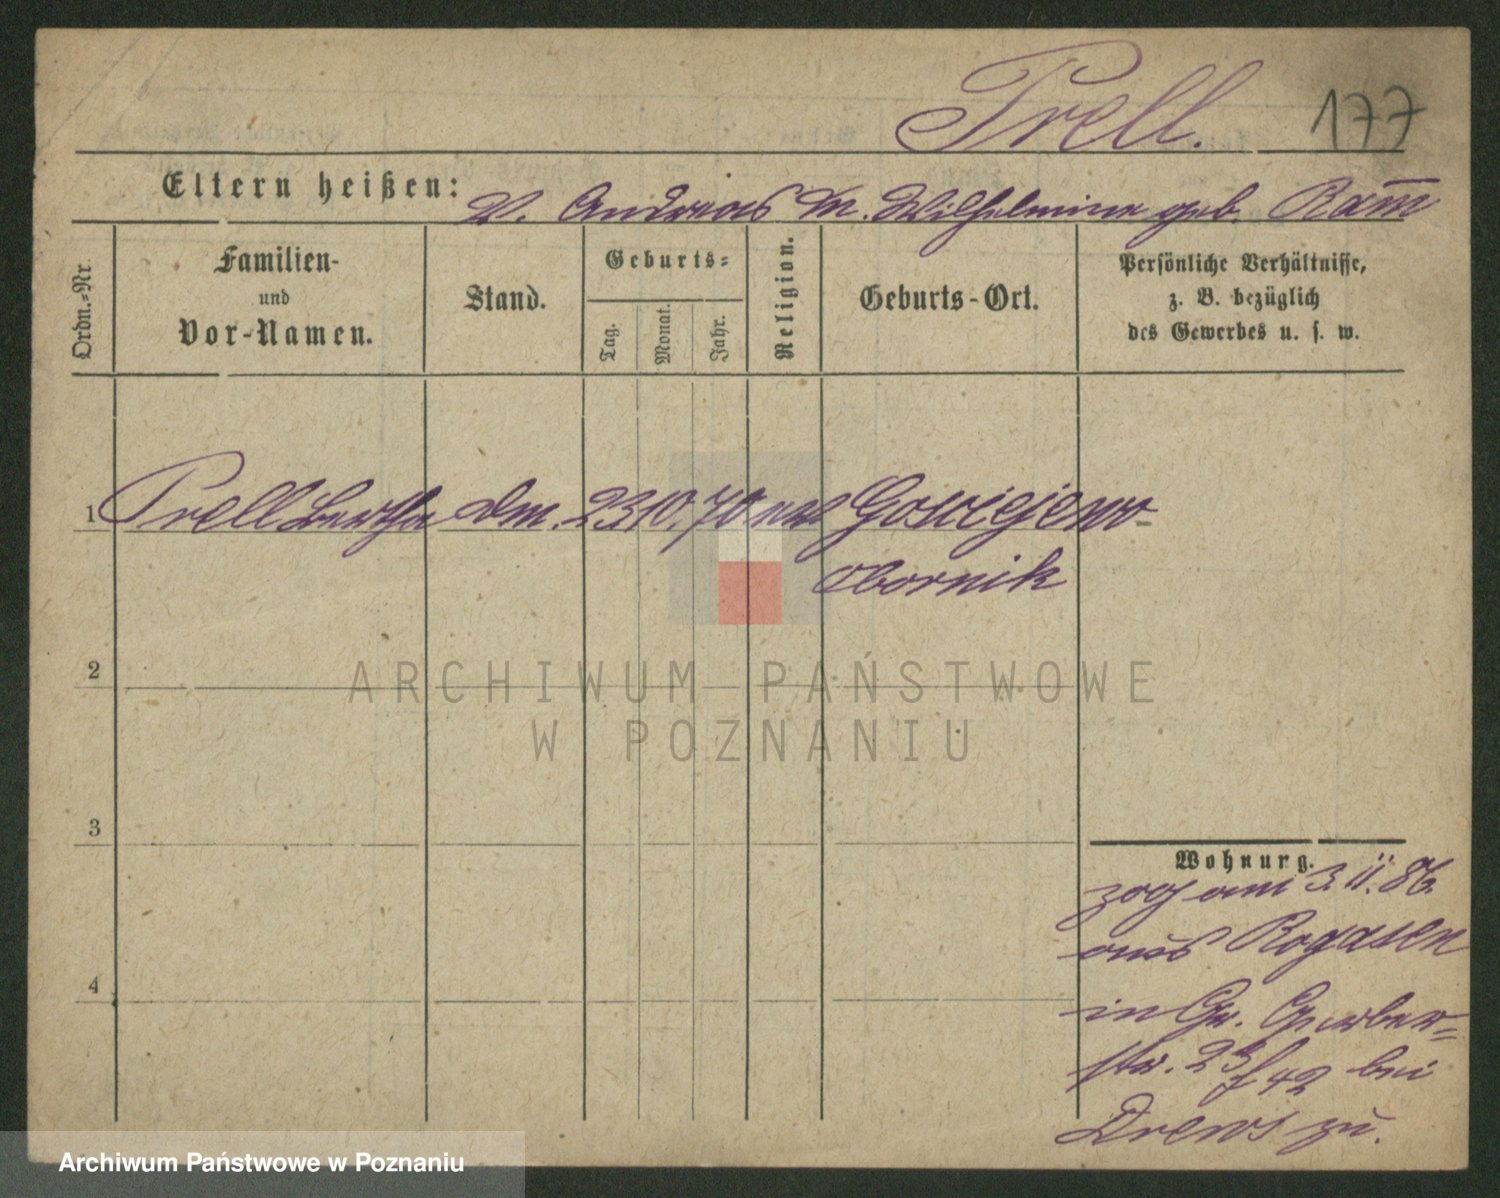 Prell. 177
Eltern heißen: V. Andreas M. Wilhelmine geb. Ram̄
Ordn.-Nr. Familien- und Vor-Namen. Stand. Geburts- Tag. Monat. Jahr. Religion. Geburts-Ort. Persönliche Verhältnisse, z. B. bezüglich des Gewerbes u. s. w.
1 Prell Bertha Dm. 23 10. 70 Gosciejewo
Obornik
2
ARCHIWUM PAŃSTWOWE
W POZNANIU
3
Wohnung.
zog am 3. 11. 86.
aus Rogasen
4
in Gr. Gerber-
str. 42 bei
Drews zu.
Archiwum Państwowe w Poznaniu